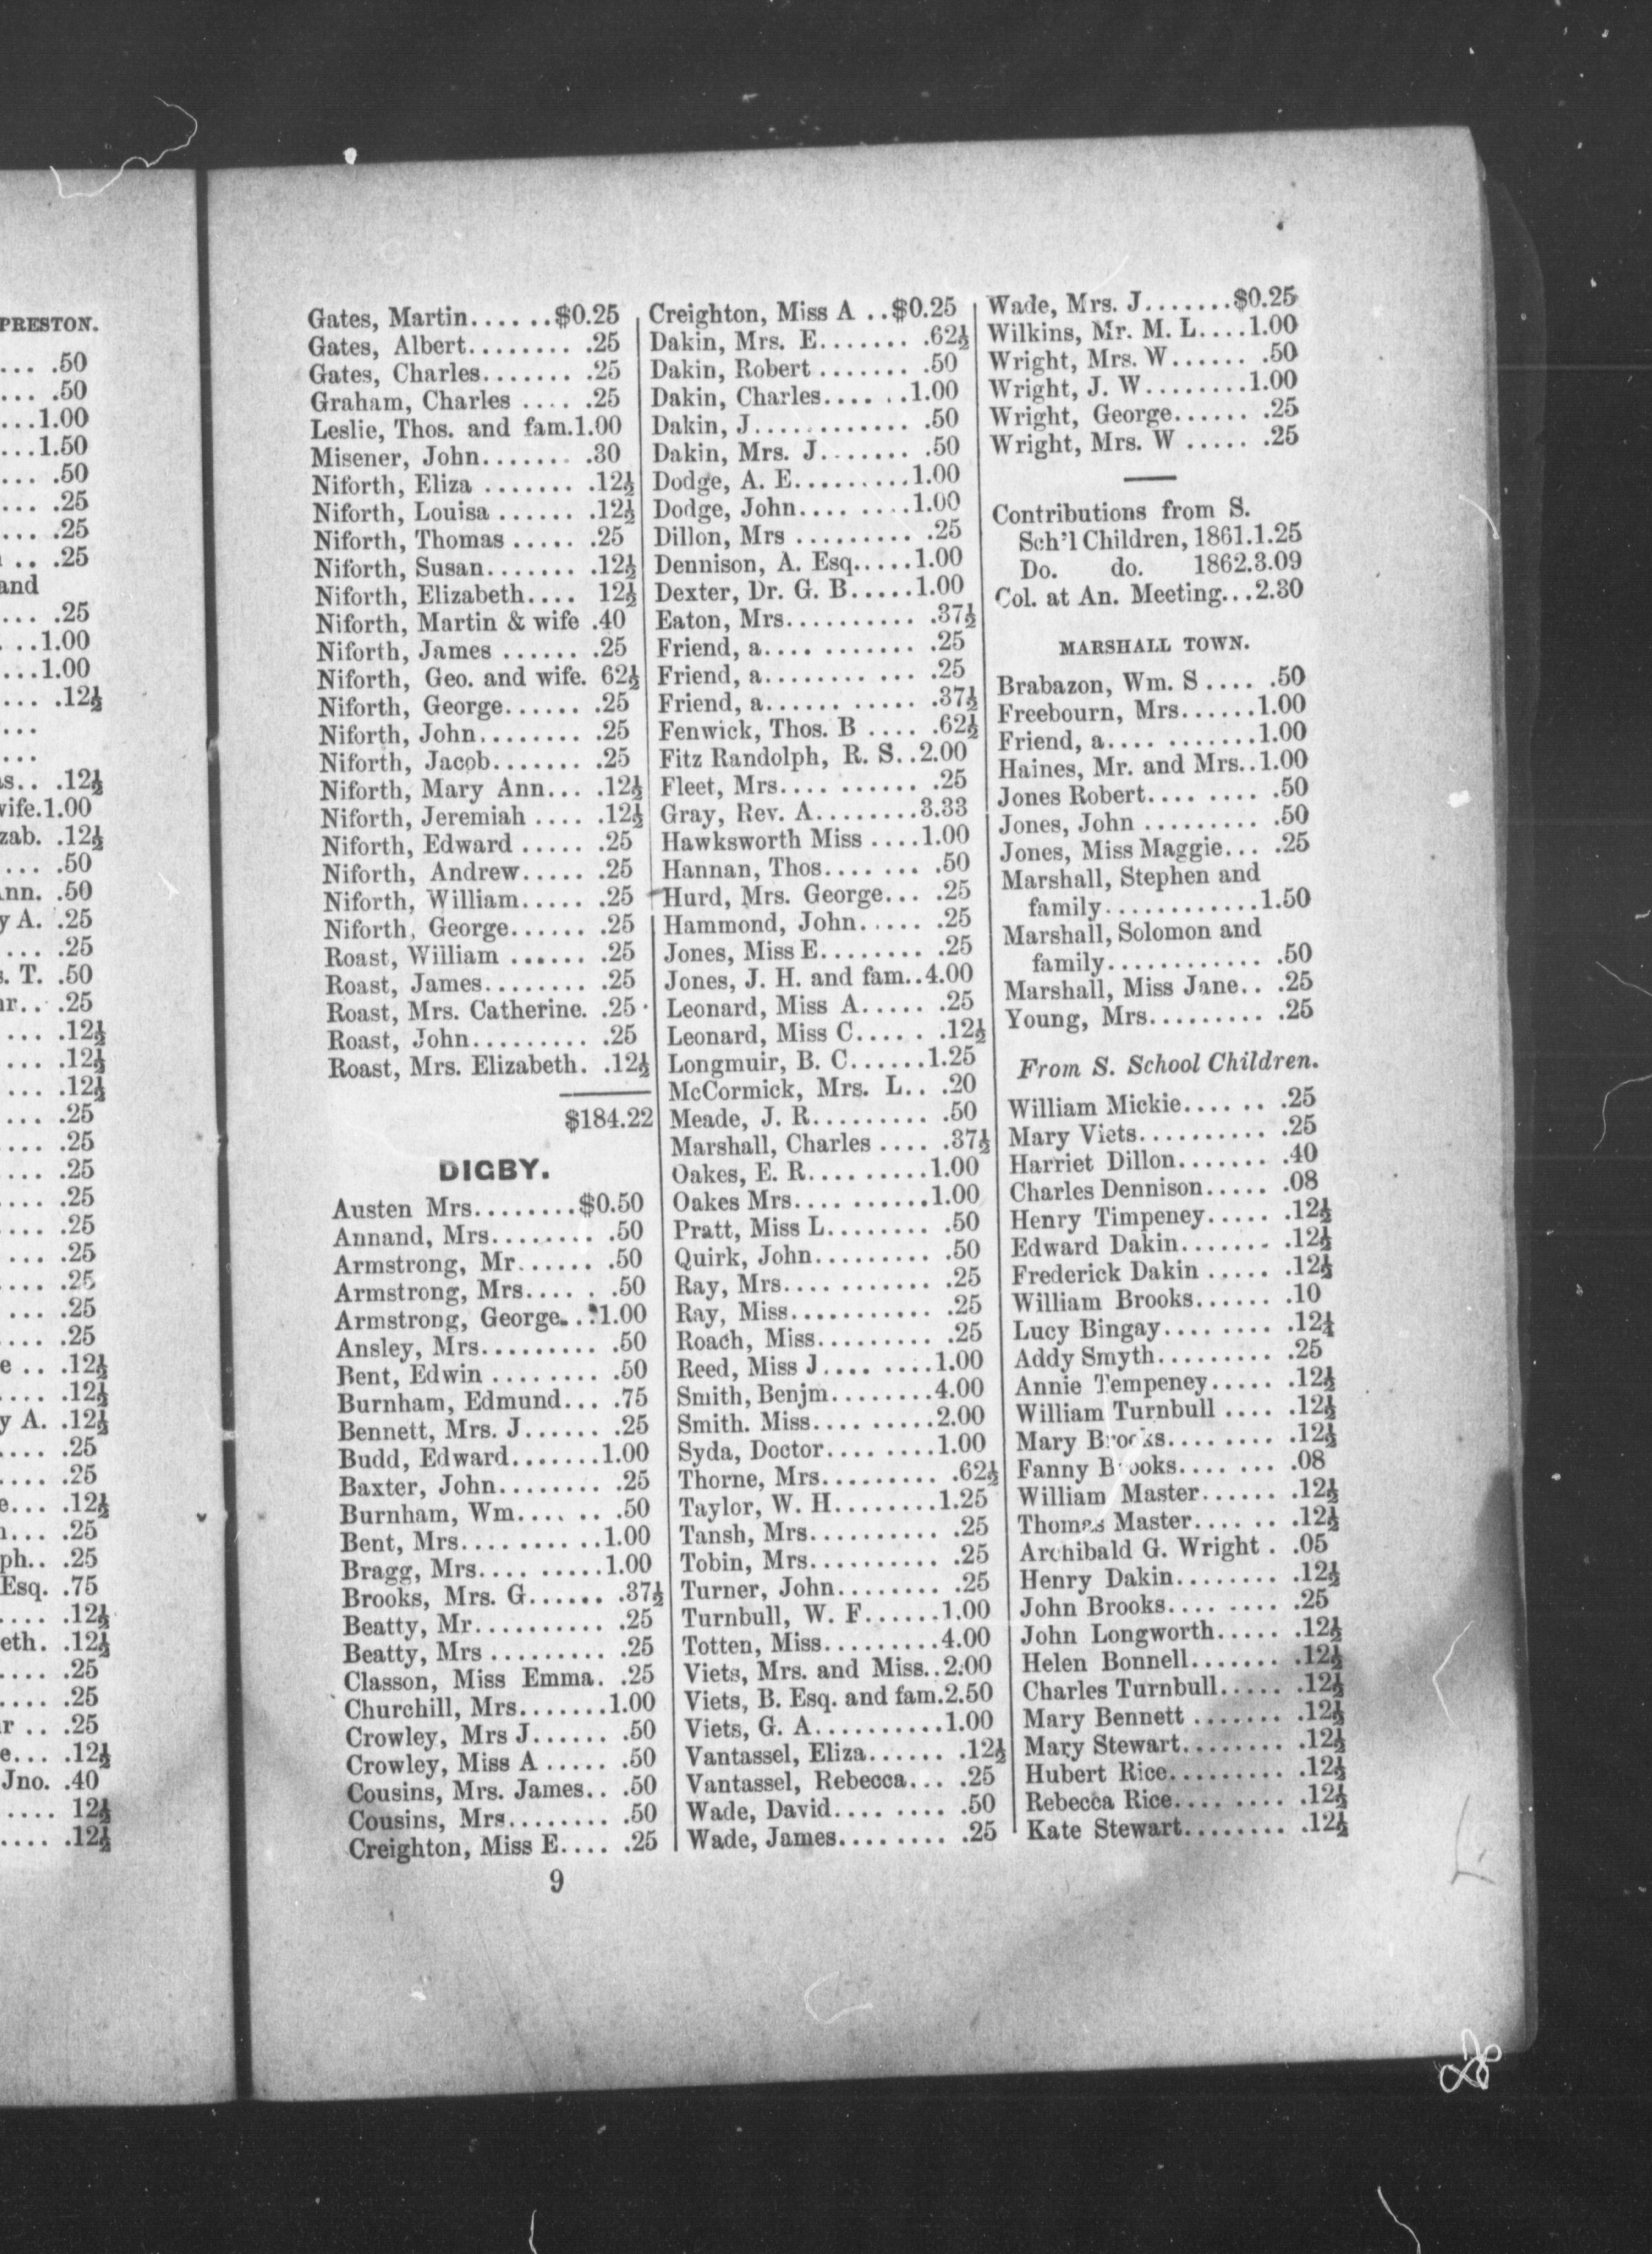 PRESTON.
... .50
... .50
...1.00
...1.50
... .50
... .25
... .25
.. .25
and
... .25
...1.00
...1.00
... .12½
...
...
s.. .12½
vife.1.00
zab. .12½
... .50
Ann. .50
y A. .25
... .25
s. T. .50
nr.. .25
... .12½
... .12½
... .12½
... .25
... .25
... .25
... .25
... .25
... .25
... .25
... .25
... .25
e .. .12½
.... .12½
y A. .12½
.... .25
.... .25
e... .12½
n... .25
ph.. .25
Esq. .75
.... .12½
eth. .12½
.... .25
.... .25
r .. .25
e... .12½
Jno. .40
.... 12½
.... .12½
Gates, Martin......$0.25
Gates, Albert........ .25
Gates, Charles....... .25
Graham, Charles .... .25
Leslie, Thos. and fam.1.00
Misener, John....... .30
Niforth, Eliza ....... .12½
Niforth, Louisa ...... .12½
Niforth, Thomas ..... .25
Niforth, Susan....... .12½
Niforth, Elizabeth.... 12½
Niforth, Martin & wife .40
Niforth, James ...... .25
Niforth, Geo. and wife. 62½
Niforth, George...... .25
Niforth, John........ .25
Niforth, Jacob....... .25
Niforth, Mary Ann... .12½
Niforth, Jeremiah .... .12½
Niforth, Edward ..... .25
Niforth, Andrew..... .25
Niforth, William..... .25
Niforth, George...... .25
Roast, William ...... .25
Roast, James........ .25
Roast, Mrs. Catherine. .25
Roast, John......... .25
Roast, Mrs. Elizabeth. .12½
$184.22
DIGBY.
Austen Mrs........$0.50
Annand, Mrs........ .50
Armstrong, Mr...... .50
Armstrong, Mrs..... .50
Armstrong, George...1.00
Ansley, Mrs......... .50
Bent, Edwin ........ .50
Burnham, Edmund... .75
Bennett, Mrs. J...... .25
Budd, Edward.......1.00
Baxter, John........ .25
Burnham, Wm...... .50
Bent, Mrs..........1.00
Bragg, Mrs.........1.00
Brooks, Mrs. G...... .37½
Beatty, Mr.......... .25
Beatty, Mrs ......... .25
Classon, Miss Emma. .25
Churchill, Mrs.......1.00
Crowley, Mrs J...... .50
Crowley, Miss A ..... .50
Cousins, Mrs. James.. .50
Cousins, Mrs........ .50
Creighton, Miss E.... .25
Creighton, Miss A ..$0.25
Dakin, Mrs. E....... .62½
Dakin, Robert ....... .50
Dakin, Charles......1.00
Dakin, J............ .50
Dakin, Mrs. J....... .50
Dodge, A. E.........1.00
Dodge, John........1.00
Dillon, Mrs ......... .25
Dennison, A. Esq.....1.00
Dexter, Dr. G. B.....1.00
Eaton, Mrs.......... .37½
Friend, a............ .25
Friend, a............ .25
Friend, a........... .37½
Fenwick, Thos. B .... .62½
Fitz Randolph, R. S..2.00
Fleet, Mrs.......... .25
Gray, Rev. A........3.33
Hawksworth Miss ....1.00
Hannan, Thos....... .50
Hurd, Mrs. George... .25
Hammond, John..... .25
Jones, Miss E........ .25
Jones, J. H. and fam..4.00
Leonard, Miss A..... .25
Leonard, Miss C..... .12½
Longmuir, B. C......1.25
McCormick, Mrs. L.. .20
Meade, J. R......... .50
Marshall, Charles .... .37½
Oakes, E. R.........1.00
Oakes Mrs..........1.00
Pratt, Miss L........ .50
Quirk, John......... .50
Ray, Mrs........... .25
Ray, Miss........... .25
Roach, Miss......... .25
Reed, Miss J........1.00
Smith, Benjm........4.00
Smith. Miss.........2.00
Syda, Doctor........1.00
Thorne, Mrs......... .62½
Taylor, W. H........1.25
Tansh, Mrs.......... .25
Tobin, Mrs.......... .25
Turner, John........ .25
Turnbull, W. F......1.00
Totten, Miss.........4.00
Viets, Mrs. and Miss..2.00
Viets, B. Esq. and fam.2.50
Viets, G. A..........1.00
Vantassel, Eliza...... .12½
Vantassel, Rebecca... .25
Wade, David........ .50
Wade, James........ .25
Wade, Mrs. J.......$0.25
Wilkins, Mr. M. L....1.00
Wright, Mrs. W...... .50
Wright, J. W........1.00
Wright, George...... .25
Wright, Mrs. W ..... .25
Contributions from S.
Sch'l Children, 1861.1.25
Do. do. 1862.3.09
Col. at An. Meeting...2.30
MARSHALL TOWN.
Brabazon, Wm. S .... .50
Freebourn, Mrs......1.00
Friend, a...........1.00
Haines, Mr. and Mrs..1.00
Jones Robert........ .50
Jones, John ......... .50
Jones, Miss Maggie... .25
Marshall, Stephen and
family............1.50
Marshall, Solomon and
family............ .50
Marshall, Miss Jane.. .25
Young, Mrs......... .25
From S. School Children.
William Mickie...... .25
Mary Viets.......... .25
Harriet Dillon....... .40
Charles Dennison..... .08
Henry Timpeney..... .12½
Edward Dakin....... .12½
Frederick Dakin ..... .12½
William Brooks...... .10
Lucy Bingay........ .12½
Addy Smyth......... .25
Annie Tempeney..... .12½
William Turnbull .... .12½
Mary Brooks........ .12½
Fanny Brooks....... .08
William Master...... .12½
Thomas Master...... .12½
Archibald G. Wright . .05
Henry Dakin........ .12½
John Brooks........ .25
John Longworth..... .12½
Helen Bonnell....... .12½
Charles Turnbull..... .12½
Mary Bennett ....... .12½
Mary Stewart........ .12½
Hubert Rice......... .12½
Rebecca Rice........ .12½
Kate Stewart........ .12½
9